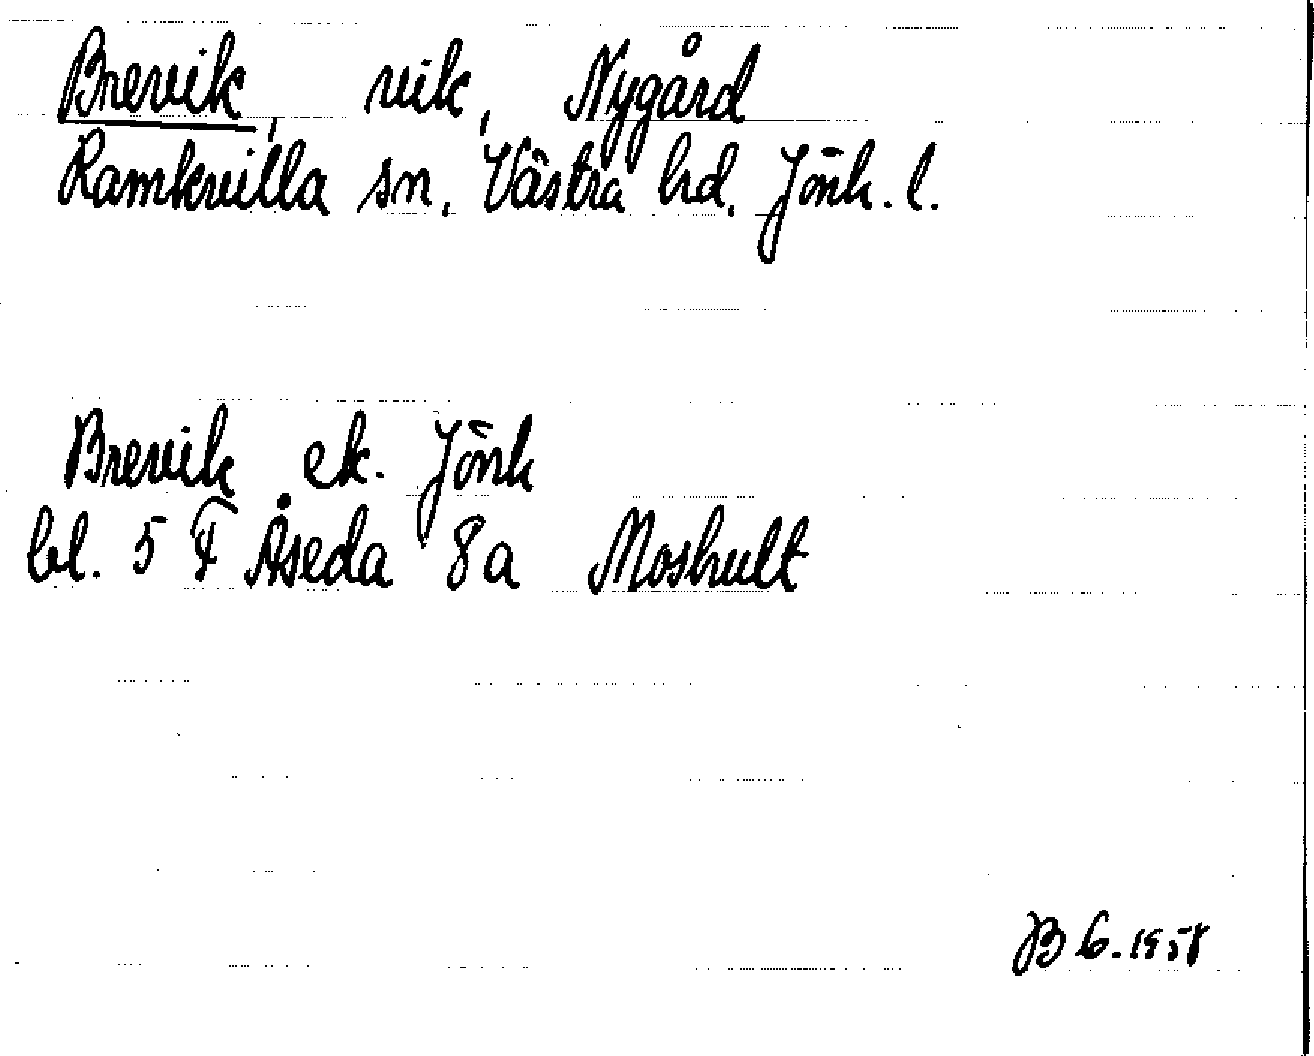 Brevik, vik, Nygård
Ramkvilla sn. Västra hd. Jönk. l.
Brevik ek. Jönk
bl. 5 F Åseda 8a Moshult
JB 6. 1958